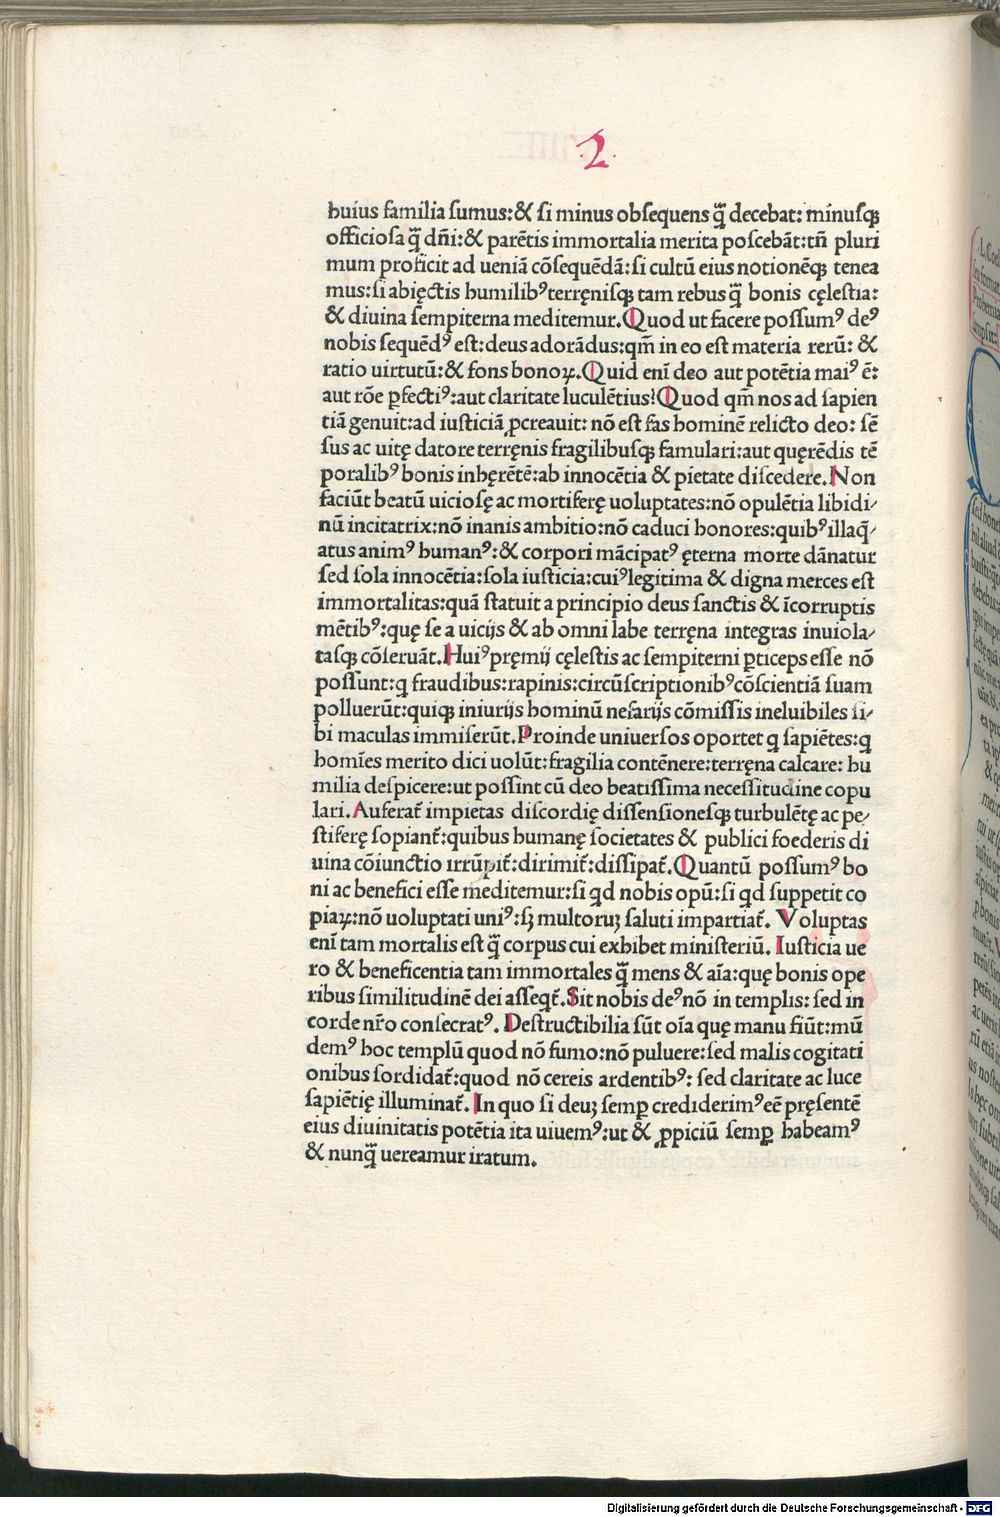 .2.
huius familia sumus:& si minus obsequens q̃ decebat: minusqꝫ
officiosa q̃ dñi:& parētis immortalia merita poscebāt:tñ pluri
mum proficit ad ueniā cōsequēdā:si cultū eius notionēqꝫ tenea
mus:si abięctis humilibꝰterręnisqꝫ tam rebus q̃ bonis cęlestia:
& diuina sempiterna meditemur.Quod ut facere possumꝰ deꝰ
nobis sequēdꝰ est:deus adorādus:qm̄ in eo est materia rerū: &
ratio uirtutū:& fons bonoꝝ.Quid enī deo aut potētia maiꝰ ē:
aut rōe ꝑfectiꝰ:aut claritate luculētius?Quod qm̄ nos ad sapien
tiā genuit:ad iusticiā ꝓcreauit: nō est fas hominē relicto deo: sē
sus ac uitę datore terręnis fragilibusqꝫ famulari:aut quęrēdis tē
poralibꝰ bonis inhęrētē:ab innocētia & pietate discedere.Non
faciūt beatū uiciosę ac mortiferę uoluptates:nō opulētia libidi/
nū incitatrix:nō inanis ambitio:nō caduci honores:quibꝰillaq̄/
atus animꝰ humanꝰ:& corpori mācipatꝰ ęterna morte dānatur
sed sola innocētia:sola iusticia:cuiꝰlegitima & digna merces est
immortalitas:quā statuit a principio deus sanctis & īcorruptis
mētibꝰ:quę se a uicijs & ab omni labe terręna integras inuiola/
tasqꝫ cōseruāt.Huiꝰpręmij cęlestis ac sempiterni ꝑticeps esse nō
possunt:q fraudibus:rapinis:circūscriptionibꝰcōscientiā suam
polluerūt:quiqꝫ iniurijs hominū nefarijs cōmissis ineluibiles si/
bi maculas immiserūt.Proinde uniuersos oportet q sapiētes:q
homīes merito dici uolūt:fragilia contēnere:terręna calcare: hu
milia despicere:ut possint cū deo beatissima necessitudine copu
lari.Auferat̃ impietas discordię dissensionesqꝫ turbulētę ac pe/
stiferę sopiant̃:quibus humanę societates & publici foederis di
uina cōiunctio irrūpit̃:dirimit̃:dissipat̃.Quantū possumꝰ bo
ni ac benefici esse meditemur:si qd nobis opū:si qd suppetit co
piaꝝ:nō uoluptati uniꝰ:sꝫ multoruꝫ saluti impartiat̃. Voluptas
enī tam mortalis est q̃ corpus cui exhibet ministeriū. Iusticia ue
ro & beneficentia tam immortales q̃ mens & aīa:quę bonis ope
ribus similitudinē dei asseqt̃.Sit nobis deꝰnō in templis: sed in
corde nr̄o consecratꝰ. Destructibilia sūt oīa quę manu fiūt:mū
demꝰ hoc templū quod nō fumo:nō puluere:sed malis cogitati
onibus sordidat̃:quod nō cereis ardentibꝰ: sed claritate ac luce
sapiētię illuminat̃. In quo si deuꝫ semꝑ crediderimꝰeē pręsentē
eius diuinitatis potētia ita uiuemꝰ:ut & ꝓpiciū semꝑ habeamꝰ
& nunq̃ uereamur iratum.
Digitalisierung gefördert durch die Deutsche Forschungsgemeinschaft - DFG